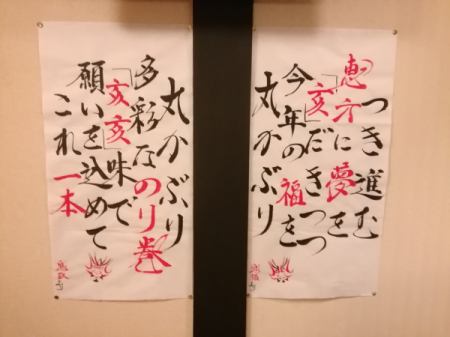 つき進む
恵方に夢を
「亥」だきつつ
今年の福を
丸かぶり
丸かぶり
多彩なのり巻
「亥亥」味で
願いを込めて
これ一本